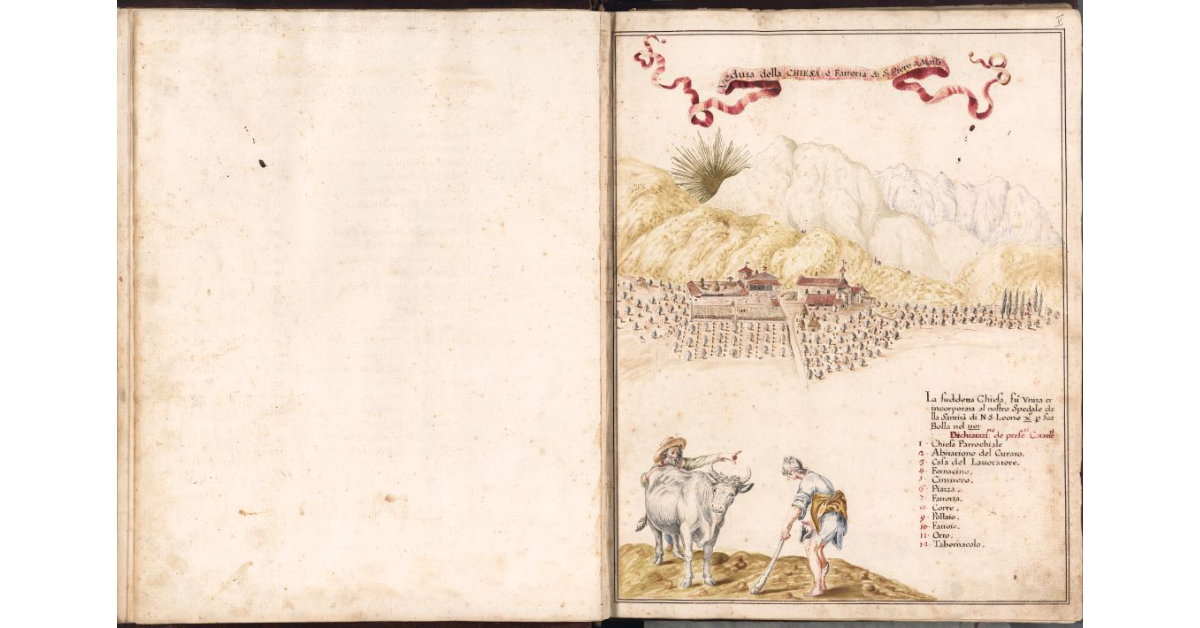 V
Veduta della CHIESA e Fattoria di S. Piero a
La suddetta Chiesa, fù Vnita et
incorporata al nostro Spedale da
lla Santità di N.S. Leone X. p sua
Bolla nel
de
1· Chiesa Parrochiale
2· Abitatione del Curato.
3· Casa del Lauoratore.
4· Fornacino.
5· Cimitero.
6· Piazza.
7· Fattoria.
8· Corte.
9· Pollaio.
10· Fattoio.
11· Orto.
12· Tabernacolo.